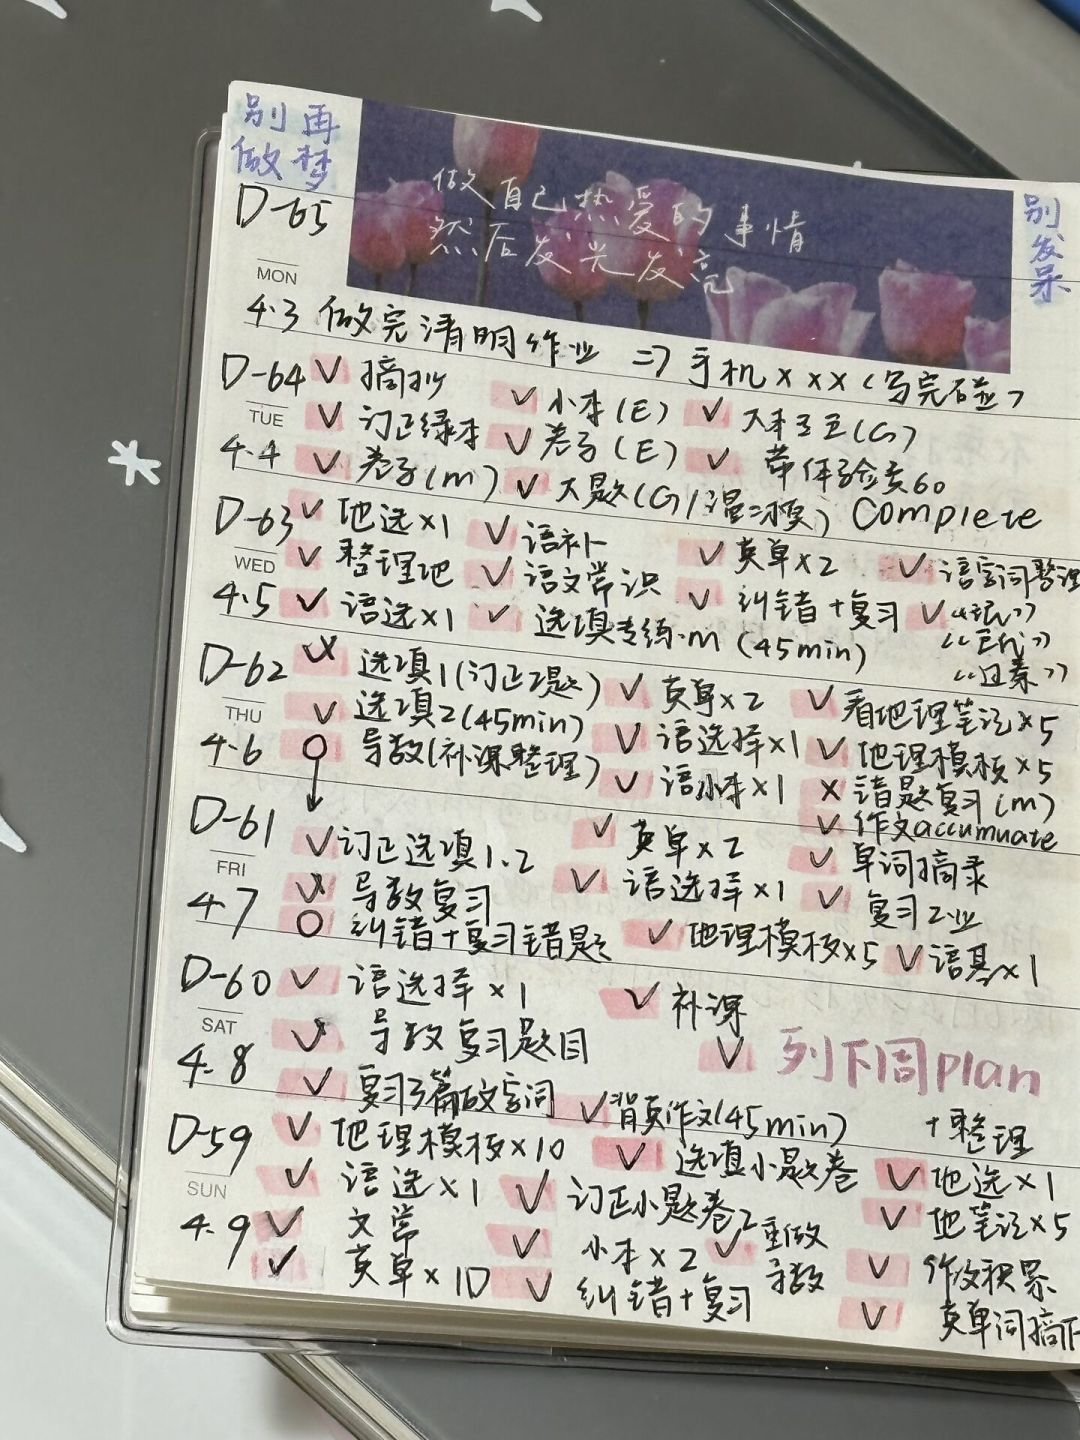 别再
做梦
做自己热爱的事情
然后发光发亮
别发呆
D-65
MON
4.3 做完清明作业 => 手机×××(写完碰)
D-64 ✓ 摘抄 ✓ 小本(E) ✓ 大本(G)
TUE ✓ 订正绿本 ✓ 卷子(E) ✓ 带体验卷60
4.4 ✓ 卷子(m) ✓ 大题(G/二模) Complete
D-63 ✓ 地选×1 ✓ 语补 ✓ 英单×2 ✓ 语实词整理
WED ✓ 整理地 ✓ 语文常识 ✓ 纠错+复习 ✓
4.5 ✓ 语选×1 ✓ 选填专练·m (45min) 《过秦》
D-62 × 选填1(订正2题) ✓ 英单×2 ✓ 看地理笔记×5
THU ✓ 选填2(45min) ✓ 语选择×1 ✓ 地理模板×5
4.6 ○ 导数(补课整理) ✓ 语小本×1 × 错题复习(m)
✓ 作文accumuate
D-61 ✓ 订正选填1.2 ✓ 英单×2 ✓ 单词摘录
FRI 导数复习 ✓ 语选择×1 ✓ 复习工业
4.7 ○ 纠错+复习错题 ✓ 地理模板×5 ✓ 语基×1
D-60 ✓ 语选择×1 ✓ 补课
SAT 导数复习题目 ✓ 列下周plan
4.8 ✓ 复习3篇故实词 ✓ 背英作文(45min) +整理
D-59 ✓ 地理模板×10 ✓ 选填小题卷 ✓ 地选×1
SUN ✓ 语选×1 ✓ 订正小题卷2 ✓ 地笔记×5
4.9 ✓ 文常 ✓ 小本×2 ✓ 重做导数 ✓ 作文积累
✓ 英单×10 ✓ 纠错+复习 ✓ 英单词摘下